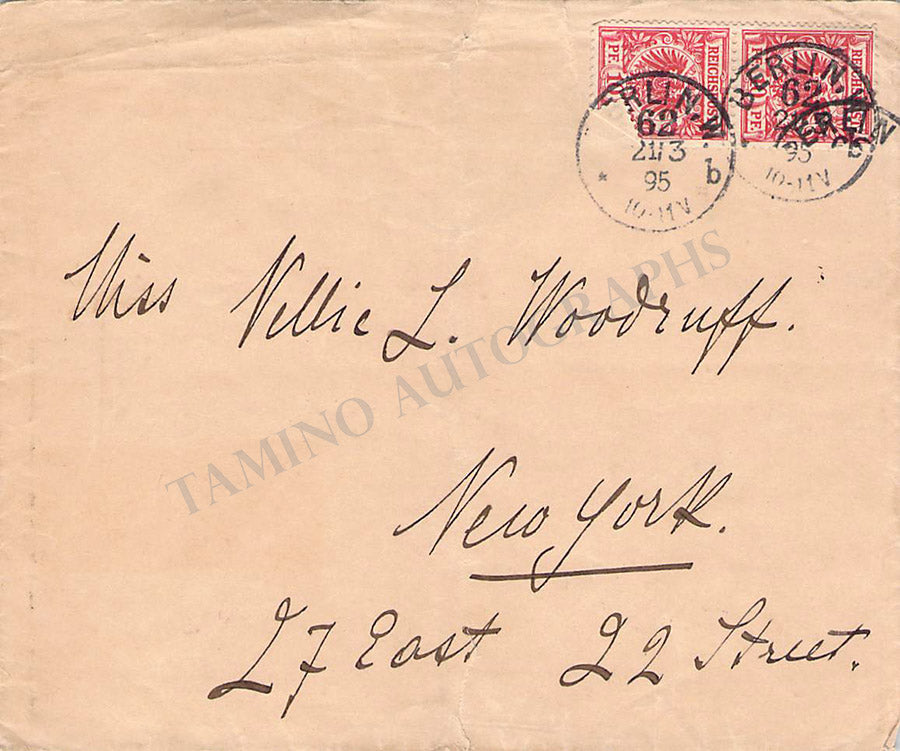 PF. 10 REICHSPOST
10 PF. REICHSPOST
BERLIN.W
62
21/3
95
10-11V
* b
BERLIN.W
62
21/3
95
10-11V
Miss Nellie L. Woodruff.
TAMINO AUTOGRAPHS
New York.
27 East 22 Street.